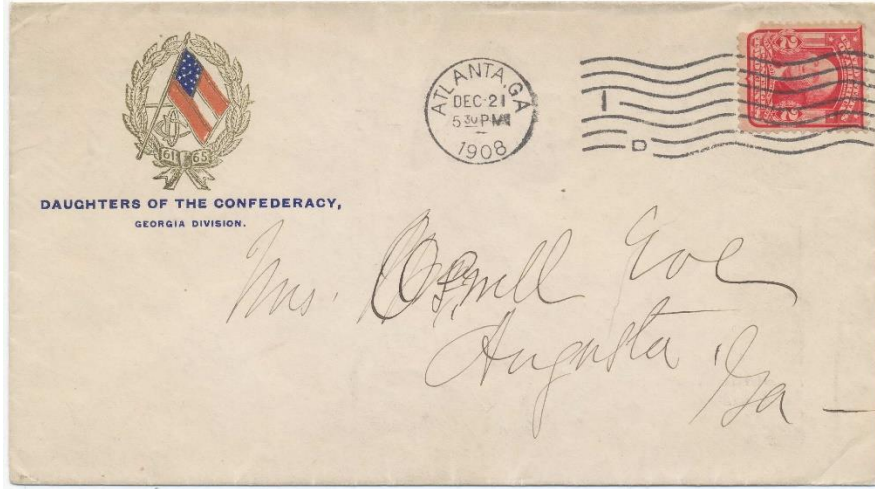 61 65
DAUGHTERS OF THE CONFEDERACY,
GEORGIA DIVISION.
ATLANTA, GA
DEC 21
5 30 PM
1908
1
D
2 2
Mrs. Eve
Augusta,
Ga